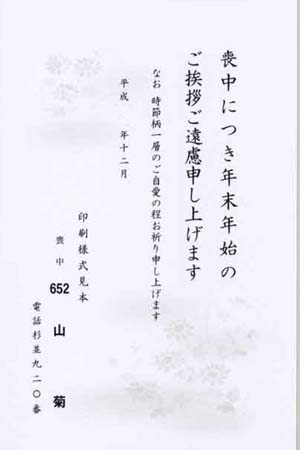 喪中につき年末年始の
ご挨拶ご遠慮申し上げます
なお 時節柄一層のご自愛の程お祈り申し上げます
平成 年十二月
印刷様式見本
喪中
652
山菊
電話杉並九二〇番